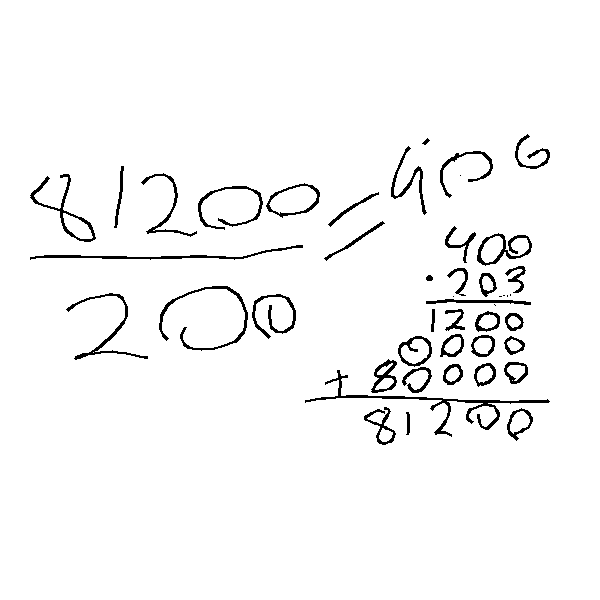 81200
———— = 406
200
400
· 203
1200
0000
+ 80000
81200